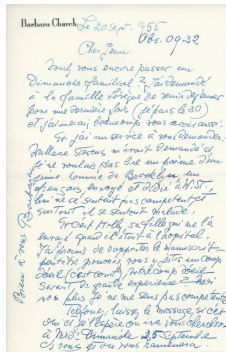 Barbara Church
Le 20 Sept. 1955
Obs. 09-32
Cher Jean
Voulez vous encore passer un
Dimanche familial ? J'ai demandé
à la famille de venir déjeuner
pour une dernière fois, je pars le 30
et j'aimerais beaucoup vous avoir aussi.
Et j'ai un service à vous demander.
Wallace Stevens m'avait demandé si
je ne voulais pas lire un poème d'un
jeune homme de Brooklyn un
envoyé et dédié à W.S.,
lui ne se sentait pas compétent et
surtout il se sentait
Holly sa fille qui me l'a
envoyé quand il était à l'hopital.
J'ai promis de le manuscript
peut être pouvez vous y jeter un coup
d'oeil (c'est court) votre coup d'oeil
de grande expérience - moi
non plus je ne me sens pas compétente
Téléphonez, laissez le message si c'est
oui et je l'espère on ira vous chercher
à Midi Dimanche 25 Septembre
chez vous et on vous ramènera
Bien à vous Barbara